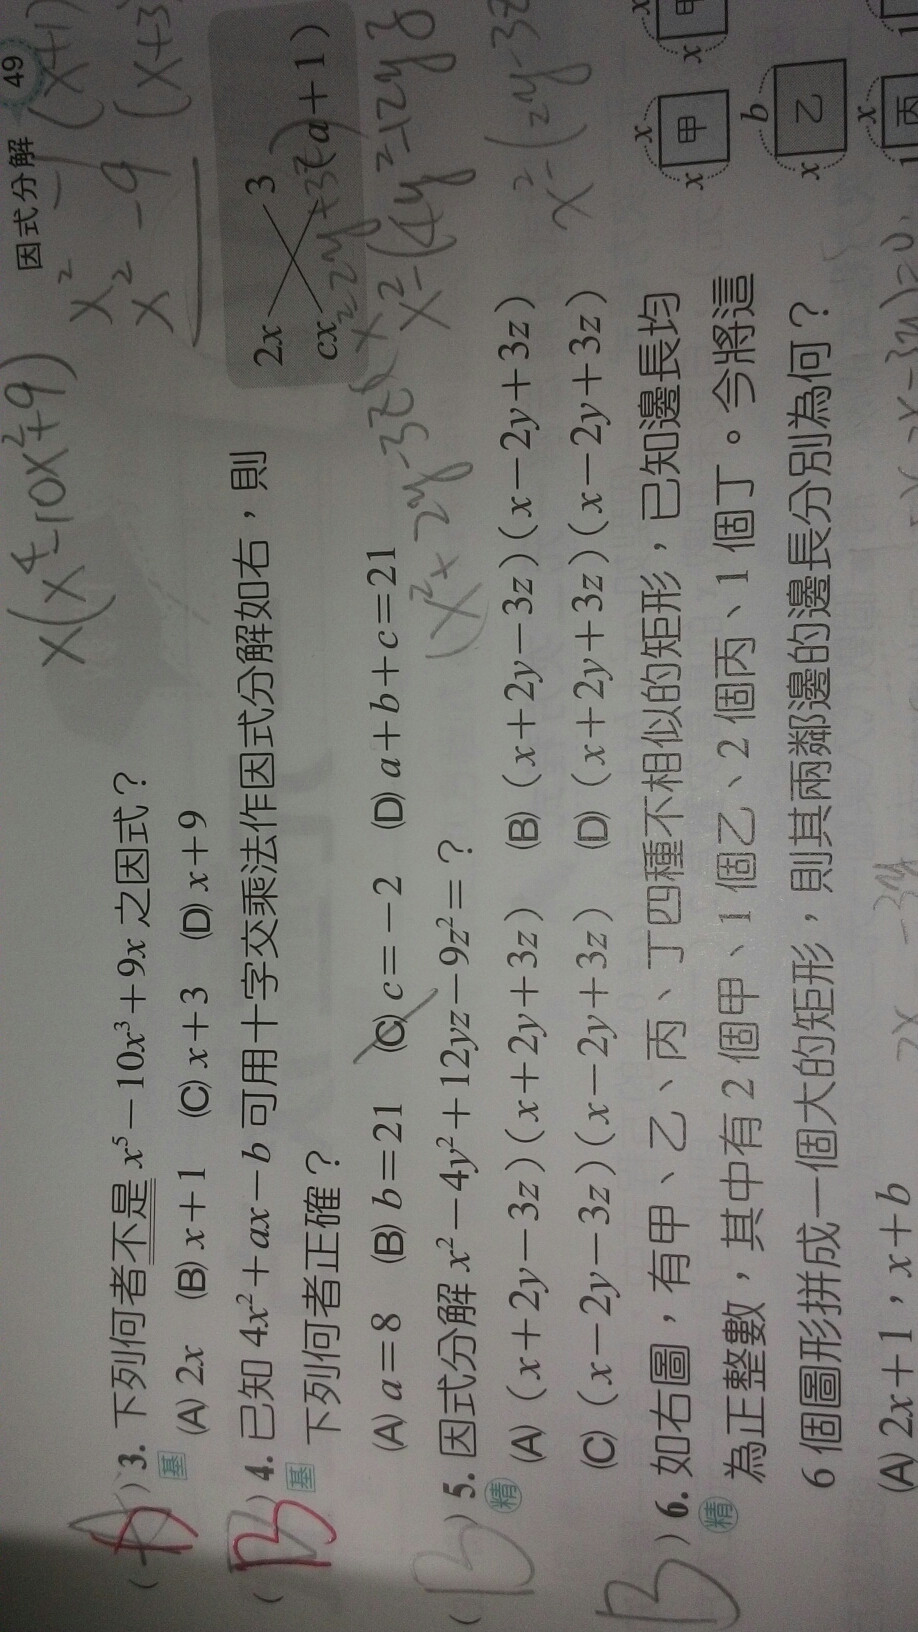 因式分解 49
x(x⁴-10x²+9)
x² - 9 (x+3
( A ) 3. 下列何者不是 x⁵－10x³＋9x 之因式？
基
(A) 2x (B) x＋1 (C) x＋3 (D) x＋9
( B ) 4. 已知 4x²＋ax－b 可用十字交乘法作因式分解如右，則
基
下列何者正確？
2x 3
cx －(a＋1)
(A) a＝8 (B) b＝21 (C) c＝－2 (D) a＋b＋c＝21
x²-(4y²-12yz
( B ) 5. 因式分解 x²－4y²＋12yz－9z²＝？
精
x²-(2y-3z
(A) (x＋2y－3z)(x＋2y＋3z) (B) (x＋2y－3z)(x－2y＋3z)
(C) (x－2y－3z)(x－2y＋3z) (D) (x＋2y＋3z)(x－2y＋3z)
B ) 6. 如右圖，有甲、乙、丙、丁四種不相似的矩形，已知邊長均
精
為正整數，其中有 2 個甲、1 個乙、2 個丙、1 個丁。今將這
6 個圖形拼成一個大的矩形，則其兩鄰邊的邊長分別為何？
x
x 甲
b
x 乙
x
1 丙
(A) 2x＋1，x＋b